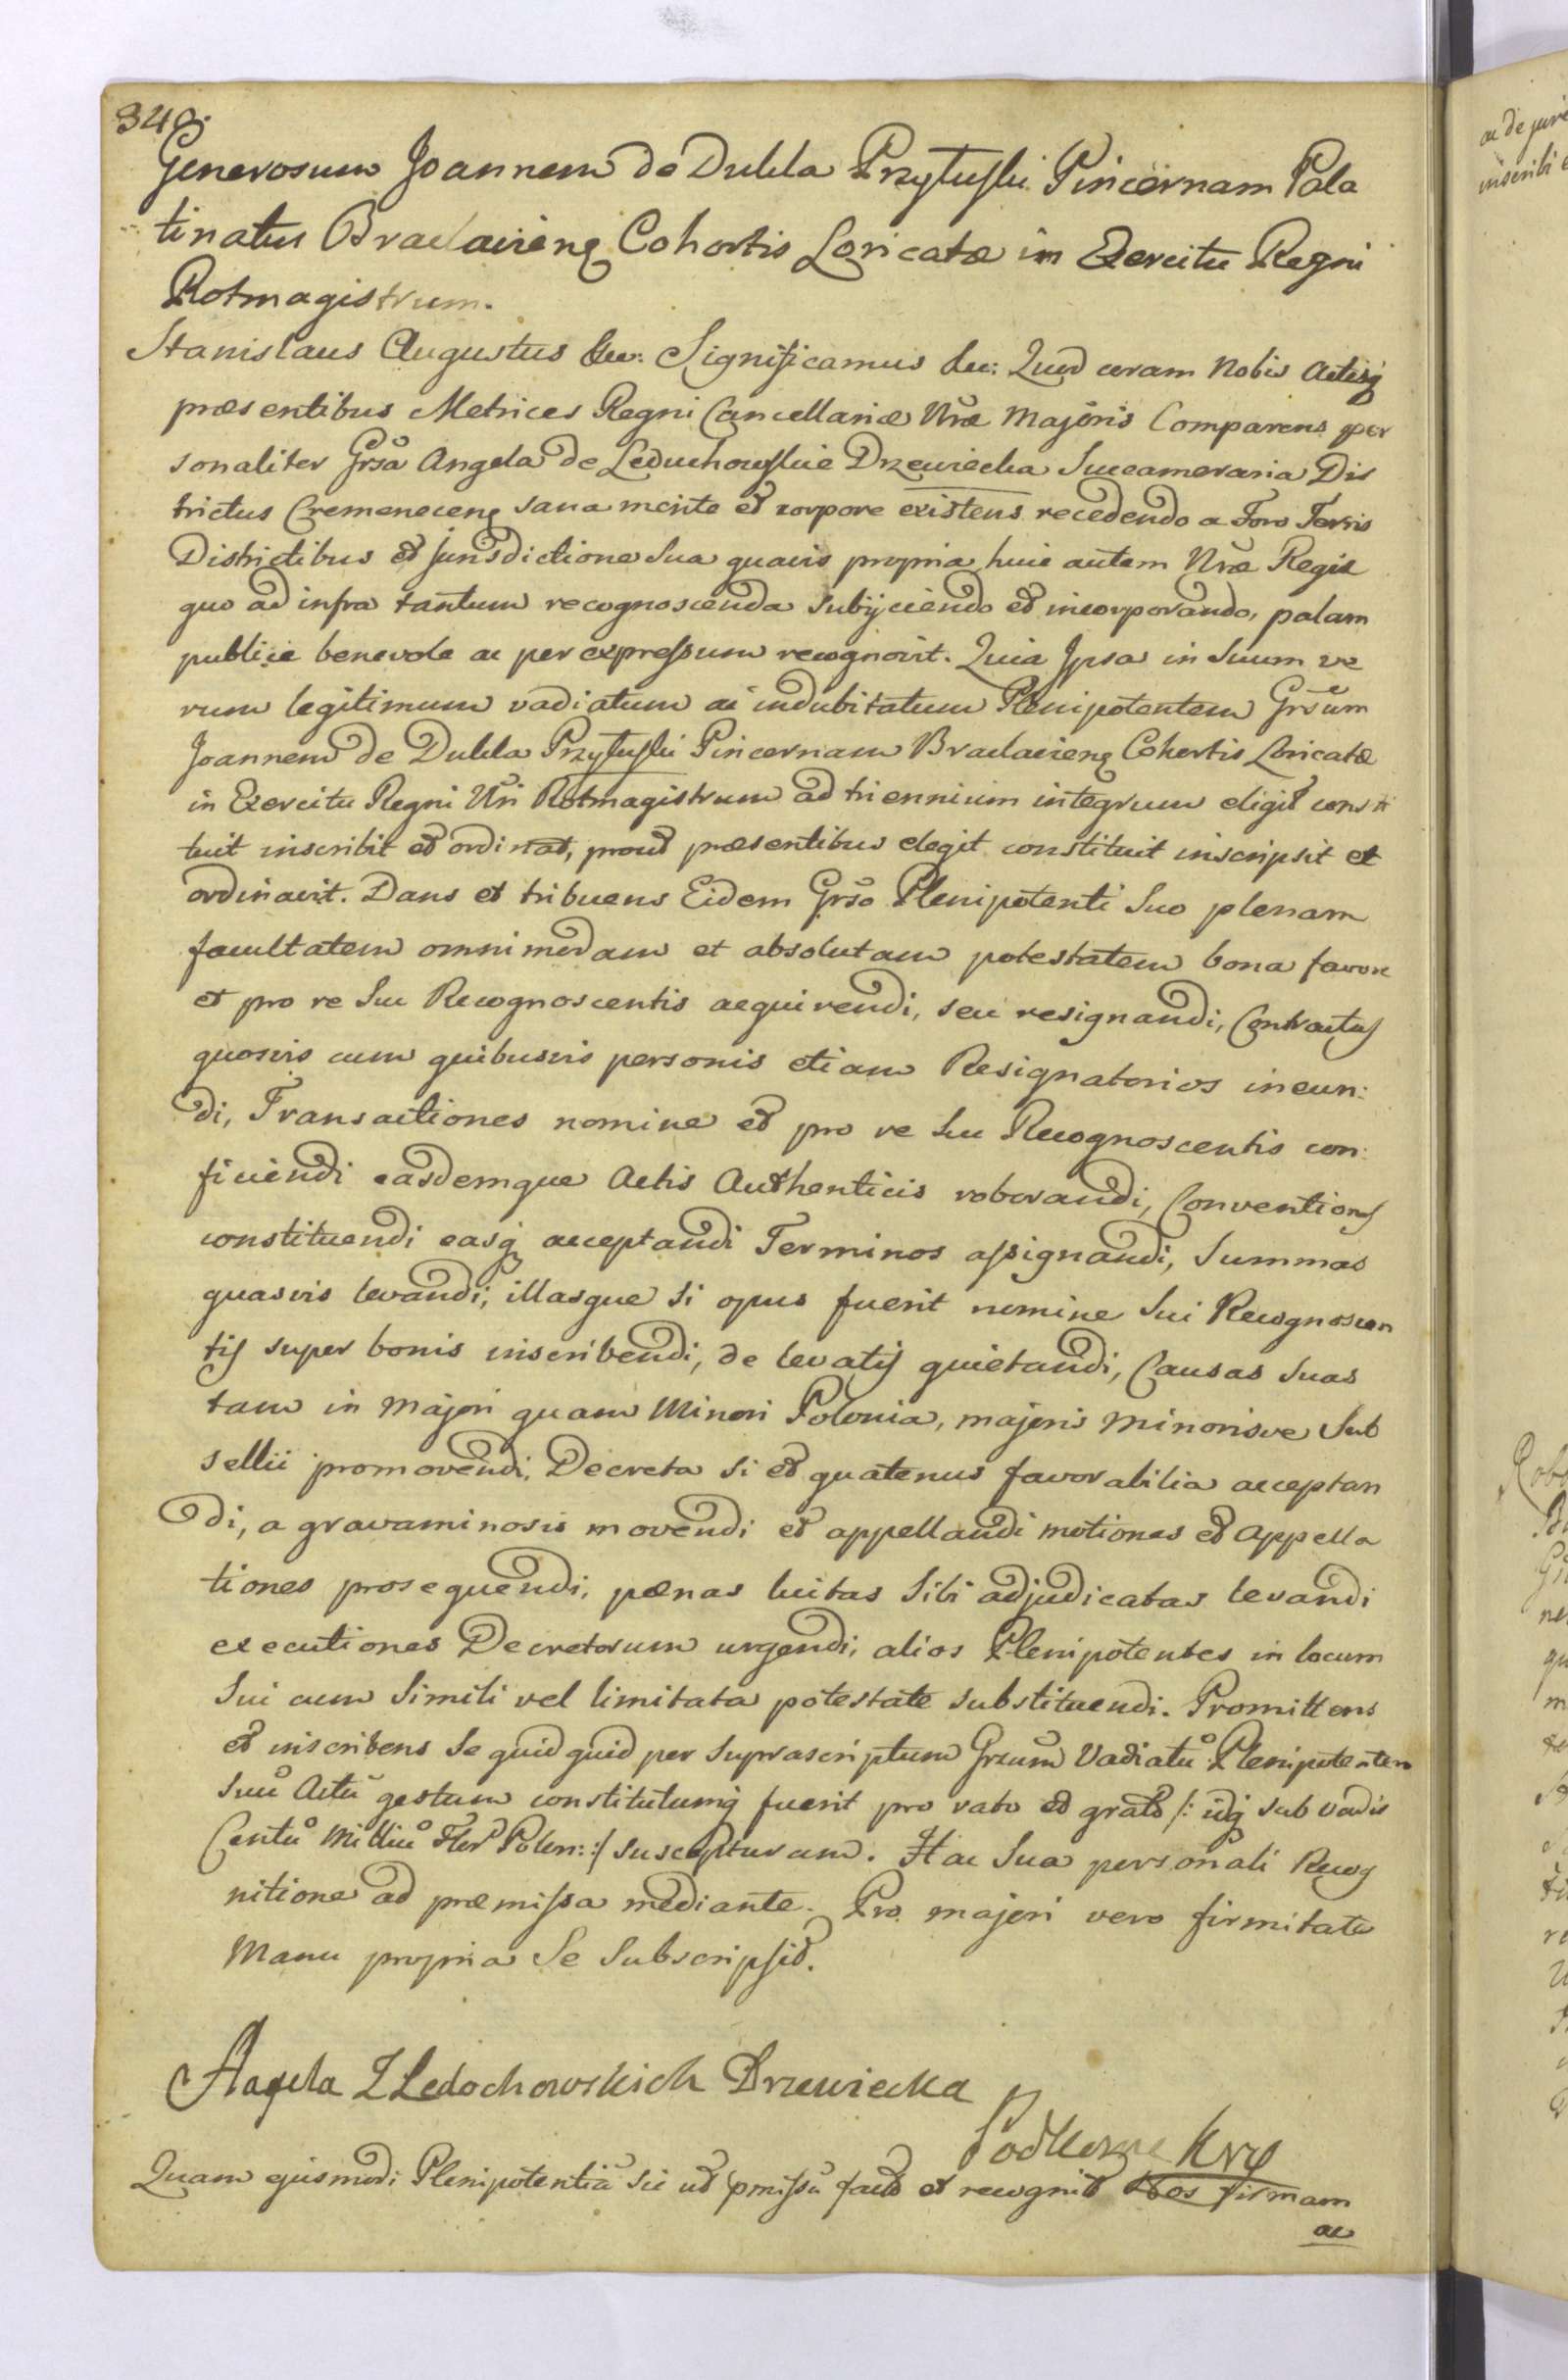 340.
Generosum Joannem de Dukla Przyłuski Pincernam Pala
tinatus Braclavienẹ Cohortis Loricatæ in Exercitu Regni
Rotmagistrum.
Stanislaus Augustus &c: Significamus &c: Quod coram Nobis Actisq
præsentibus Metrices Regni Cancellariæ Nræ Majoris Comparens per
sonaliter Grsa Angela de Leduchowskie Drzewiecka Succameraria Dis
trictus Cremenecenẹ sana mente et corpore existens recedendo a Foro Terris
Districtibus et jurisdictione Sua quavis propria huic autem Nræ Regiæ
quo ad infra tantum recognoscenda subijciendo et incorporando, palam
publice benevole ac per expressum recognovit. Quia Ipsa in Suum ve
rum legitimum vadiatum ac indubitatum Plenipotentem Grsum
Joannem de Dukla Przyłuski Pincernam Braclavienẹ Cohortis Loricatæ
in Exercitu Regni Nri Rotmagistrum ad triennium integrum eligit consti
tuit inscribit et ordinat, prout præsentibus elegit constituit inscripsit et
ordinavit. Dans et tribuens Eidem Grso Plenipotenti Suo plenam
facultatem omnimodam et absolutam potestatem bona favore
et pro re Sui Recognoscentis acquirendi, seu resignandi, Contractus
quosvis cum quibusvis personis etiam Resignatorios ineun:
di, Transactiones nomine et pro re Sui Recognoscentis con:
ficiendi easdemque Actis Authenticis roborandi, Conventiones
constituendi easq acceptandi Terminos assignandi, Summas
quasvis levandi, illasque si opus fuerit nomine Sui Recognoscen
tis super bonis inscribendi, de levatis quietandi, Causas Suas
tam in Majori quam Minori Polonia, majoris Minorisve Sub
sellii promovendi, Decreta si et quatenus favorabilia acceptan
di, a gravaminosis movendi et appellandi motiones et Appella
tiones prosequendi, pænas luitas Sibi adjudicatas levandi
executiones Decretorum urgendi, alios Plenipotentes in locum
Sui cum Simili vel limitata potestate substituendi. Promittens
et inscribens Se quid quid per Suprascriptum Grsum Vadiatu Plenipotentem
Suu Actu gestum constitutumq fuerit pro rato et grato /: idq sub vadio
Centu Milliu Flor Polon: :/ suscepturam. Hac Sua personali Recog
nitione ad præmissa mediante. Pro majori vero firmitate
Manu propria Se Subscripsit.
Angela Z Ledochowskich Drzewiecka
Podkorzyc Krz
Quam ejusmodi Plenipotentia sic ut pmissu fact et recognit Nos firmam
ac